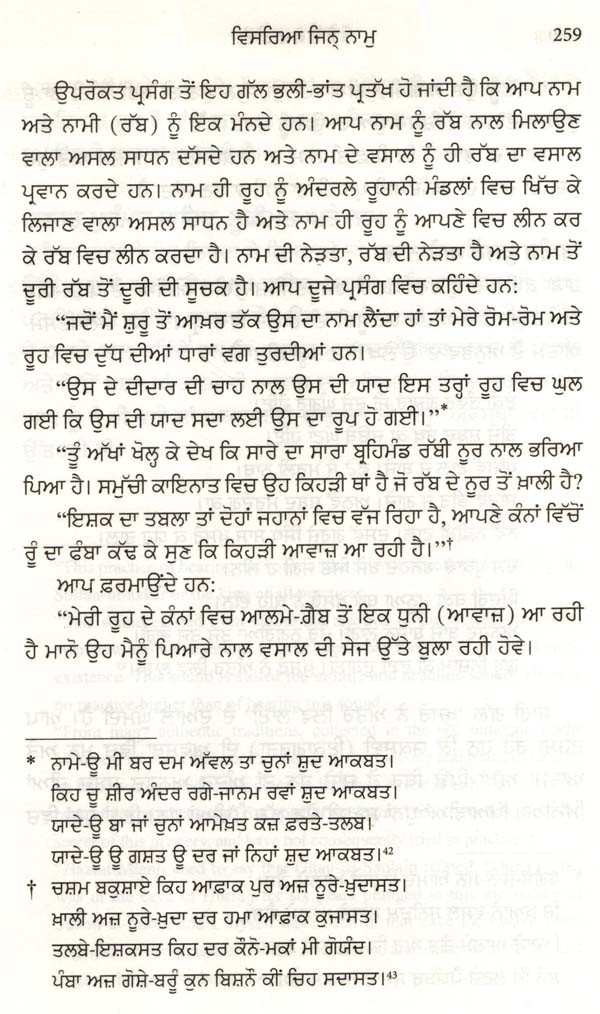 ਵਿਸਰਿਆ ਜਿਨ੍ ਨਾਮੁ
259
ਉਪਰੋਕਤ ਪ੍ਰਸੰਗ ਤੋਂ ਇਹ ਗੱਲ ਭਲੀ-ਭਾਂਤ ਪ੍ਰਤੱਖ ਹੋ ਜਾਂਦੀ ਹੈ ਕਿ ਆਪ ਨਾਮ
ਅਤੇ ਨਾਮੀ (ਰੱਬ) ਨੂੰ ਇਕ ਮੰਨਦੇ ਹਨ। ਆਪ ਨਾਮ ਨੂੰ ਰੱਬ ਨਾਲ ਮਿਲਾਉਣ
ਵਾਲਾ ਅਸਲ ਸਾਧਨ ਦੱਸਦੇ ਹਨ ਅਤੇ ਨਾਮ ਦੇ ਵਸਾਲ ਨੂੰ ਹੀ ਰੱਬ ਦਾ ਵਸਾਲ
ਪ੍ਰਵਾਨ ਕਰਦੇ ਹਨ। ਨਾਮ ਹੀ ਰੂਹ ਨੂੰ ਅੰਦਰਲੇ ਰੂਹਾਨੀ ਮੰਡਲਾਂ ਵਿਚ ਖਿੱਚ ਕੇ
ਲਿਜਾਣ ਵਾਲਾ ਅਸਲ ਸਾਧਨ ਹੈ ਅਤੇ ਨਾਮ ਹੀ ਰੂਹ ਨੂੰ ਆਪਣੇ ਵਿਚ ਲੀਨ ਕਰ
ਕੇ ਰੱਬ ਵਿਚ ਲੀਨ ਕਰਦਾ ਹੈ। ਨਾਮ ਦੀ ਨੇੜਤਾ, ਰੱਬ ਦੀ ਨੇੜਤਾ ਹੈ ਅਤੇ ਨਾਮ ਤੋਂ
ਦੂਰੀ ਰੱਬ ਤੋਂ ਦੂਰੀ ਦੀ ਸੂਚਕ ਹੈ। ਆਪ ਦੂਜੇ ਪ੍ਰਸੰਗ ਵਿਚ ਕਹਿੰਦੇ ਹਨ:
“ਜਦੋਂ ਮੈਂ ਸ਼ੁਰੂ ਤੋਂ ਆਖ਼ਰ ਤੱਕ ਉਸ ਦਾ ਨਾਮ ਲੈਂਦਾ ਹਾਂ ਤਾਂ ਮੇਰੇ ਰੋਮ-ਰੋਮ ਅਤੇ
ਰੂਹ ਵਿਚ ਦੁੱਧ ਦੀਆਂ ਧਾਰਾਂ ਵਗ ਤੁਰਦੀਆਂ ਹਨ।
“ਉਸ ਦੇ ਦੀਦਾਰ ਦੀ ਚਾਹ ਨਾਲ ਉਸ ਦੀ ਯਾਦ ਇਸ ਤਰ੍ਹਾਂ ਰੂਹ ਵਿਚ ਘੁਲ
ਗਈ ਕਿ ਉਸ ਦੀ ਯਾਦ ਸਦਾ ਲਈ ਉਸ ਦਾ ਰੂਪ ਹੋ ਗਈ।”*
“ਤੂੰ ਅੱਖਾਂ ਖੋਲ੍ਹ ਕੇ ਦੇਖ ਕਿ ਸਾਰੇ ਦਾ ਸਾਰਾ ਬ੍ਰਹਿਮੰਡ ਰੱਬੀ ਨੂਰ ਨਾਲ ਭਰਿਆ
ਪਿਆ ਹੈ। ਸਮੁੱਚੀ ਕਾਇਨਾਤ ਵਿਚ ਉਹ ਕਿਹੜੀ ਥਾਂ ਹੈ ਜੋ ਰੱਬ ਦੇ ਨੂਰ ਤੋਂ ਖ਼ਾਲੀ ਹੈ?
“ਇਸ਼ਕ ਦਾ ਤਬਲਾ ਤਾਂ ਦੋਹਾਂ ਜਹਾਨਾਂ ਵਿਚ ਵੱਜ ਰਿਹਾ ਹੈ, ਆਪਣੇ ਕੰਨਾਂ ਵਿੱਚੋਂ
ਰੂੰ ਦਾ ਫੰਬਾ ਕੱਢ ਕੇ ਸੁਣ ਕਿ ਕਿਹੜੀ ਆਵਾਜ਼ ਆ ਰਹੀ ਹੈ।”†
ਆਪ ਫ਼ਰਮਾਉਂਦੇ ਹਨ:
“ਮੇਰੀ ਰੂਹ ਦੇ ਕੰਨਾਂ ਵਿਚ ਆਲਮੇ-ਗ਼ੈਬ ਤੋਂ ਇਕ ਧੁਨੀ (ਆਵਾਜ਼) ਆ ਰਹੀ
ਹੈ ਮਾਨੋ ਉਹ ਮੈਨੂੰ ਪਿਆਰੇ ਨਾਲ ਵਸਾਲ ਦੀ ਸੇਜ ਉੱਤੇ ਬੁਲਾ ਰਹੀ ਹੋਵੇ।
* ਨਾਮੇ-ਊ ਮੀ ਬਰ ਦਮ ਅੱਵਲ ਤਾ ਚੁਨਾਂ ਸ਼ੁਦ ਆਕਬਤ।
ਕਿਹ ਚੂ ਸ਼ੀਰ ਅੰਦਰ ਰਗੇ-ਜਾਨਮ ਰਵਾਂ ਸ਼ੁਦ ਆਕਬਤ।
ਯਾਦੇ-ਊ ਬਾ ਜਾਂ ਚੁਨਾਂ ਆਮੇਖ਼ਤ ਕਜ਼ ਫ਼ਰਤੇ-ਤਲਬ।
ਯਾਦੇ-ਊ ਊ ਗਸ਼ਤ ਊ ਦਰ ਜਾਂ ਨਿਹਾਂ ਸ਼ੁਦ ਆਕਬਤ।42
† ਚਸ਼ਮ ਬਕੁਸ਼ਾਏ ਕਿਹ ਆਫ਼ਾਕ ਪੁਰ ਅਜ਼ ਨੂਰੇ-ਖ਼ੁਦਾਸਤ।
ਖ਼ਾਲੀ ਅਜ਼ ਨੂਰੇ-ਖ਼ੁਦਾ ਦਰ ਹਮਾ ਆਫ਼ਾਕ ਕੁਜਾਸਤ।
ਤਲਬੇ-ਇਸ਼ਕਸਤ ਕਿਹ ਦਰ ਕੌਨੋ-ਮਕਾਂ ਮੀ ਗੋਯੰਦ।
ਪੰਬਾ ਅਜ਼ ਗੋਸ਼ੇ-ਬਰੂੰ ਕੁਨ ਬਿਸ਼ਨੌ ਕੀਂ ਚਿਹ ਸਦਾਸਤ।43